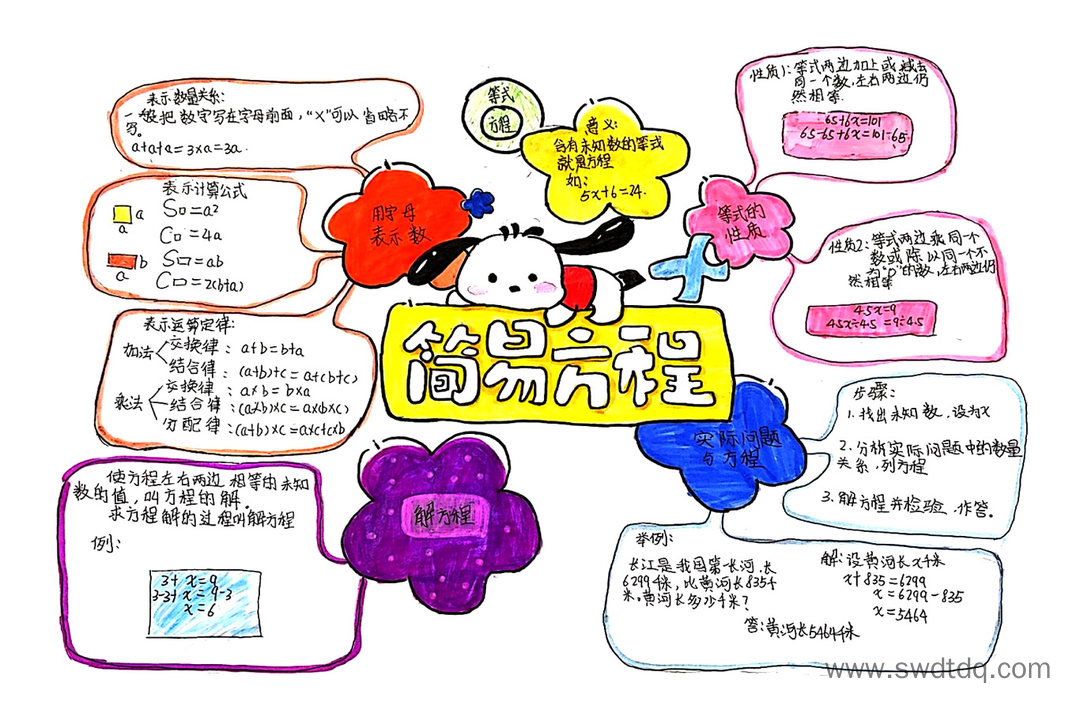 简易方程
等式
方程
意义：
含有未知数的等式
就是方程
如：
5x+6=24.
用字母
表示数
表示数量关系：
一般把数字写在字母前面，“×”可以省略不
写。
a+a+a=3×a=3a.
表示计算公式
a
a
S□=a²
C□=4a
b
a
S▭=ab
C▭=2(b+a)
表示运算定律：
加法
交换律：a+b=b+a
结合律：(a+b)+c=a+(b+c)
乘法
交换律：a×b=b×a
结合律：(a×b)×c=a×(b×c)
分配律：(a+b)×c=a×c+c×b
等式的
性质
性质1：等式两边加上或减去
同一个数，左右两边仍
然相等.
65+6x=101
65-65+6x=101-65
性质2：等式两边乘同一个
数或除以同一个不
为“0”的数，左右两边仍
然相等
4.5x=9
4.5x÷4.5=9÷4.5
解方程
使方程左右两边相等的未知
数的值，叫方程的解。
求方程解的过程叫解方程
例：
3+x=9
3-3+x=9-3
x=6
实际问题
与方程
步骤：
1.找出未知数，设为x
2.分析实际问题中的数量
关系，列方程
3.解方程并检验，作答。
举例：
长江是我国第一长河，长
6299千米，比黄河长835千
米。黄河长多少千米？
解：设黄河长x千米
x+835=6299
x=6299-835
x=5464
答：黄河长5464千米
www.swdtdq.com